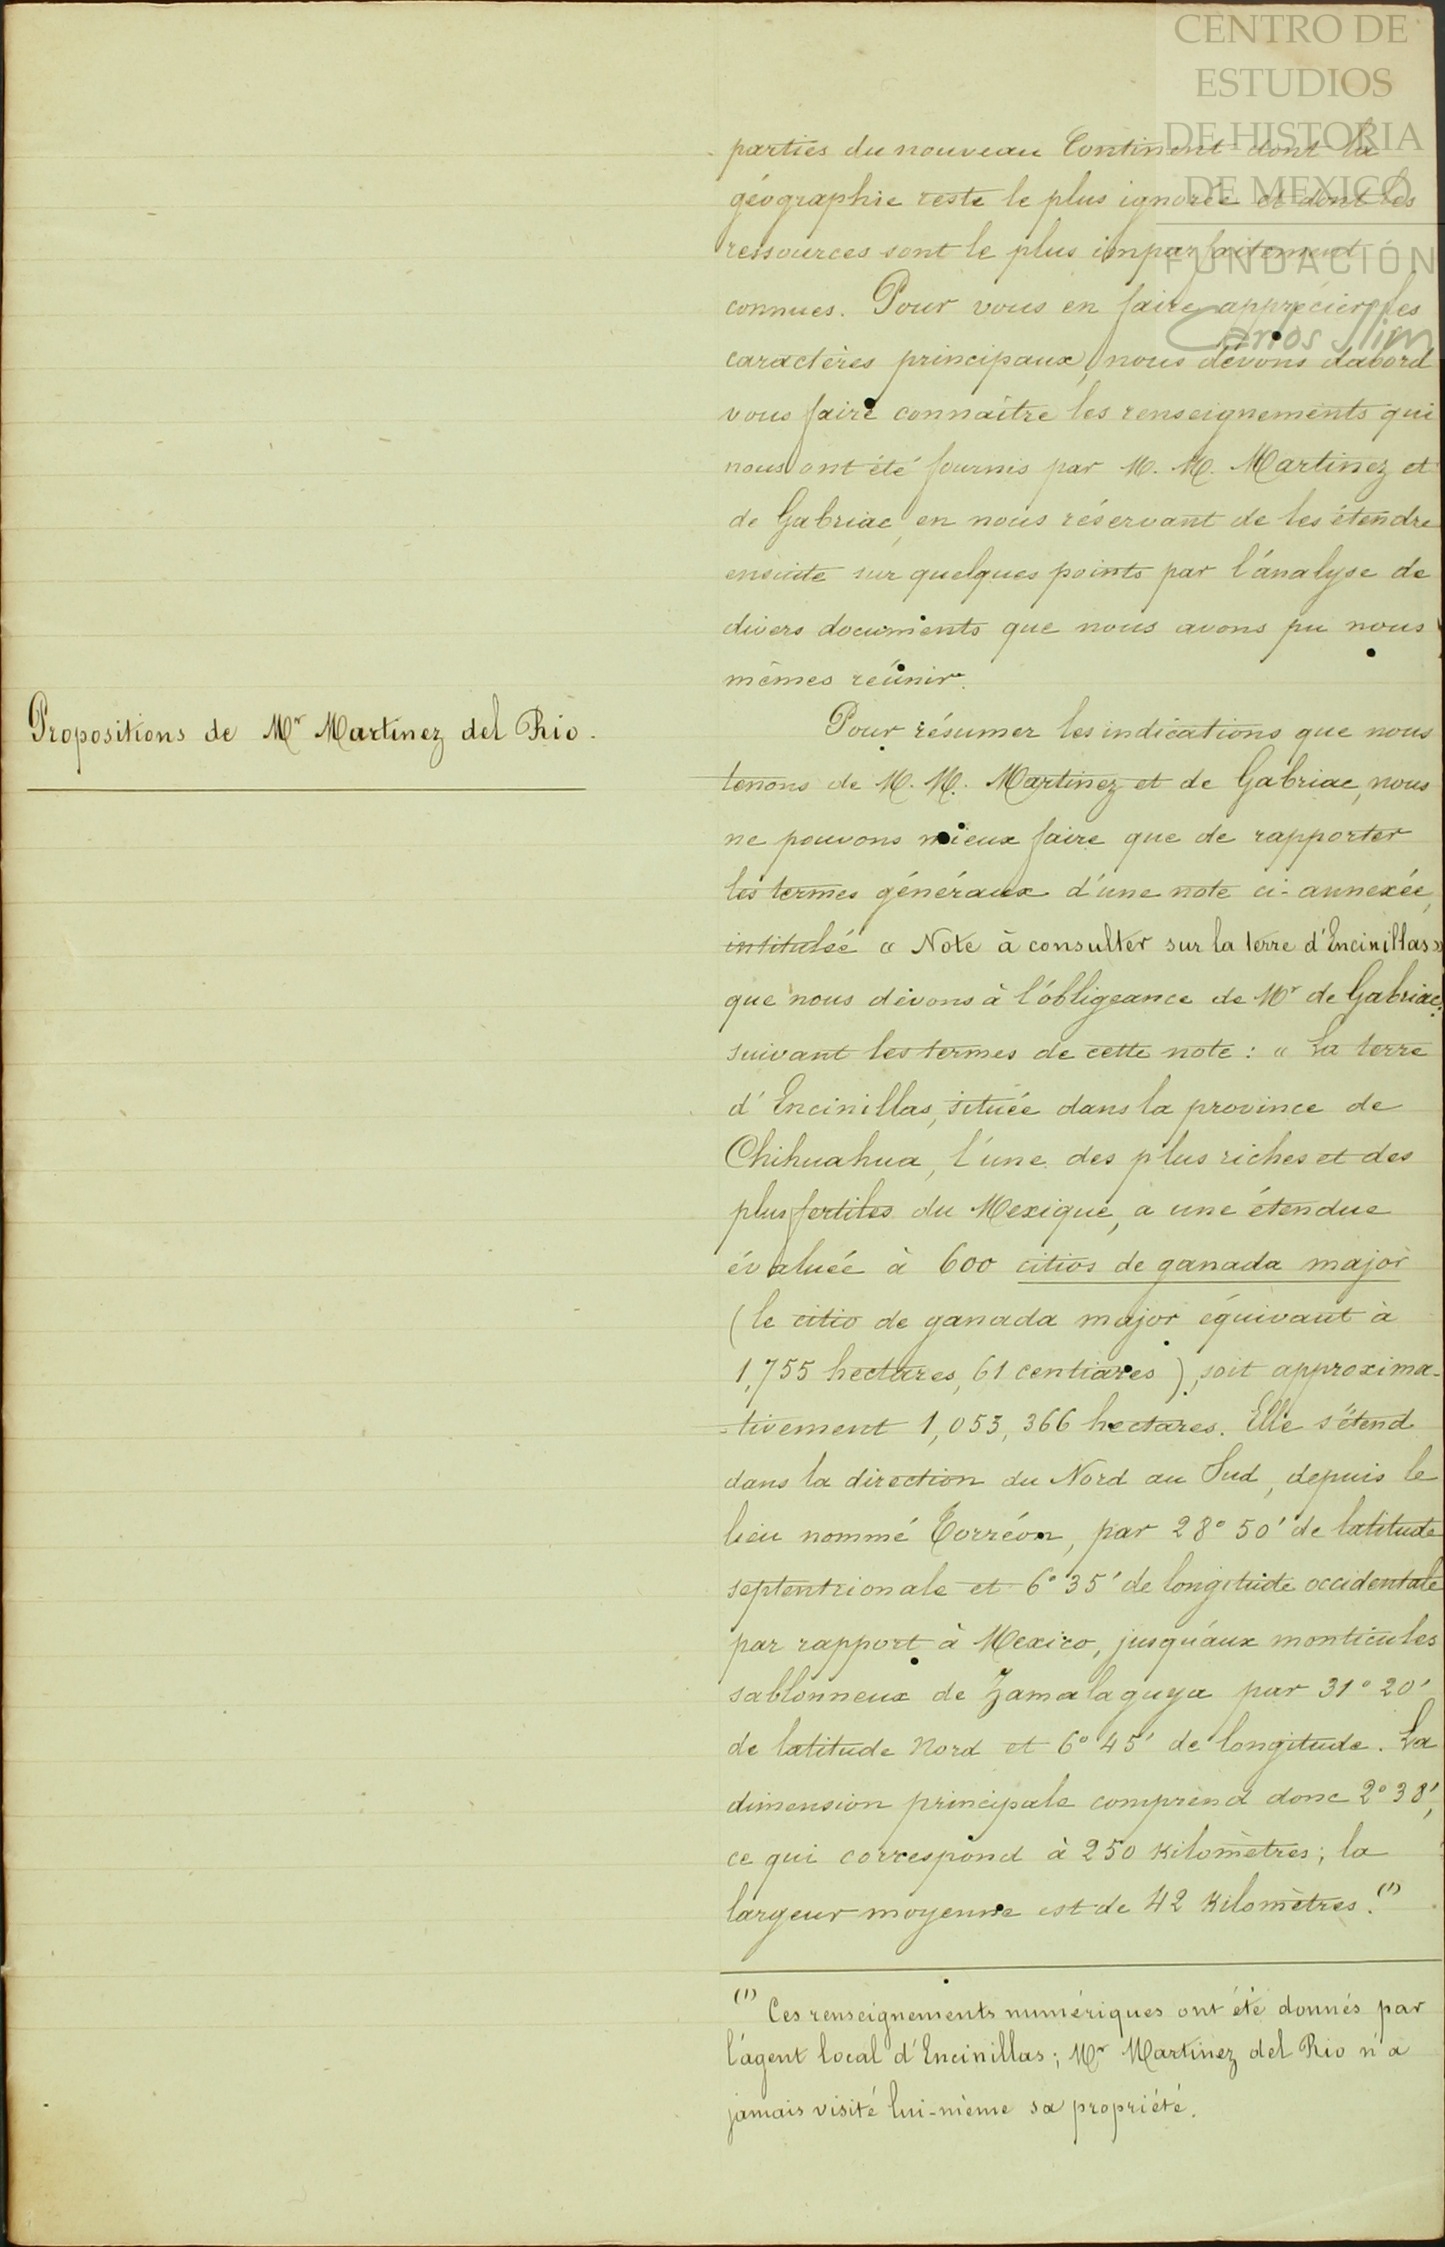 CENTRO DE
ESTUDIOS
DE HISTORIA
DE MEXICO
FUNDACIÓN
Carlos Slim
parties du nouveau Continent dont la
géographie reste le plus ignorée et dont les
ressources sont le plus imparfaitement
connues. Pour vous en faire apprécier les
caractères principaux, nous dévons dabord
vous faire connaître les renseignements qui
nous ont été fournis par M. M. Martinez et
de Gabriac, en nous réservant de les étendre
ensuite sur quelques points par l'ánalyse de
divers documents que nous avons pu nous
mêmes réunir.
Propositions de Mr Martinez del Rio.
Pour résumer les indications que nous
tenons de M. M. Martinez et de Gabriac, nous
ne pouvons mieux faire que de rapporter
les termes généraux d'une note ci-annexée,
intitulée « Note à consulter sur la terre d'Encinillas »
que nous dévons à l'óbligeance de Mr de Gabriac.
suivant les termes de cette note : « La terre
d'Encinillas, située dans la province de
Chihuahua, l'une des plus riches et des
plus fertiles du Mexique, a une étendue
évaluée à 600 citios de ganada major
(le citio de ganada major équivaut à
1,755 hectares, 61 centiares), soit approxima-
-tivement 1,053,366 hectares. Elle s'étend
dans la direction du Nord au Sud, depuis le
lieu nommé Corréon, par 28° 50' de latitude
septentrionale et 6° 35' de longitude occidentale
par rapport à Mexico, jusqu'aux monticules
sablonneux de Zamalaguya par 31° 20'
de latitude Nord et 6° 45' de longitude. La
dimension principale comprend donc 2° 38',
ce qui correspond à 250 kilomètres; la
largeur moyenne est de 42 Kilomètres.(1)
(1) Ces renseignements numériques ont été donnés par
l'ágent local d'Encinillas; Mr Martinez del Rio n'a
jamais visité lui-même sa propriété.